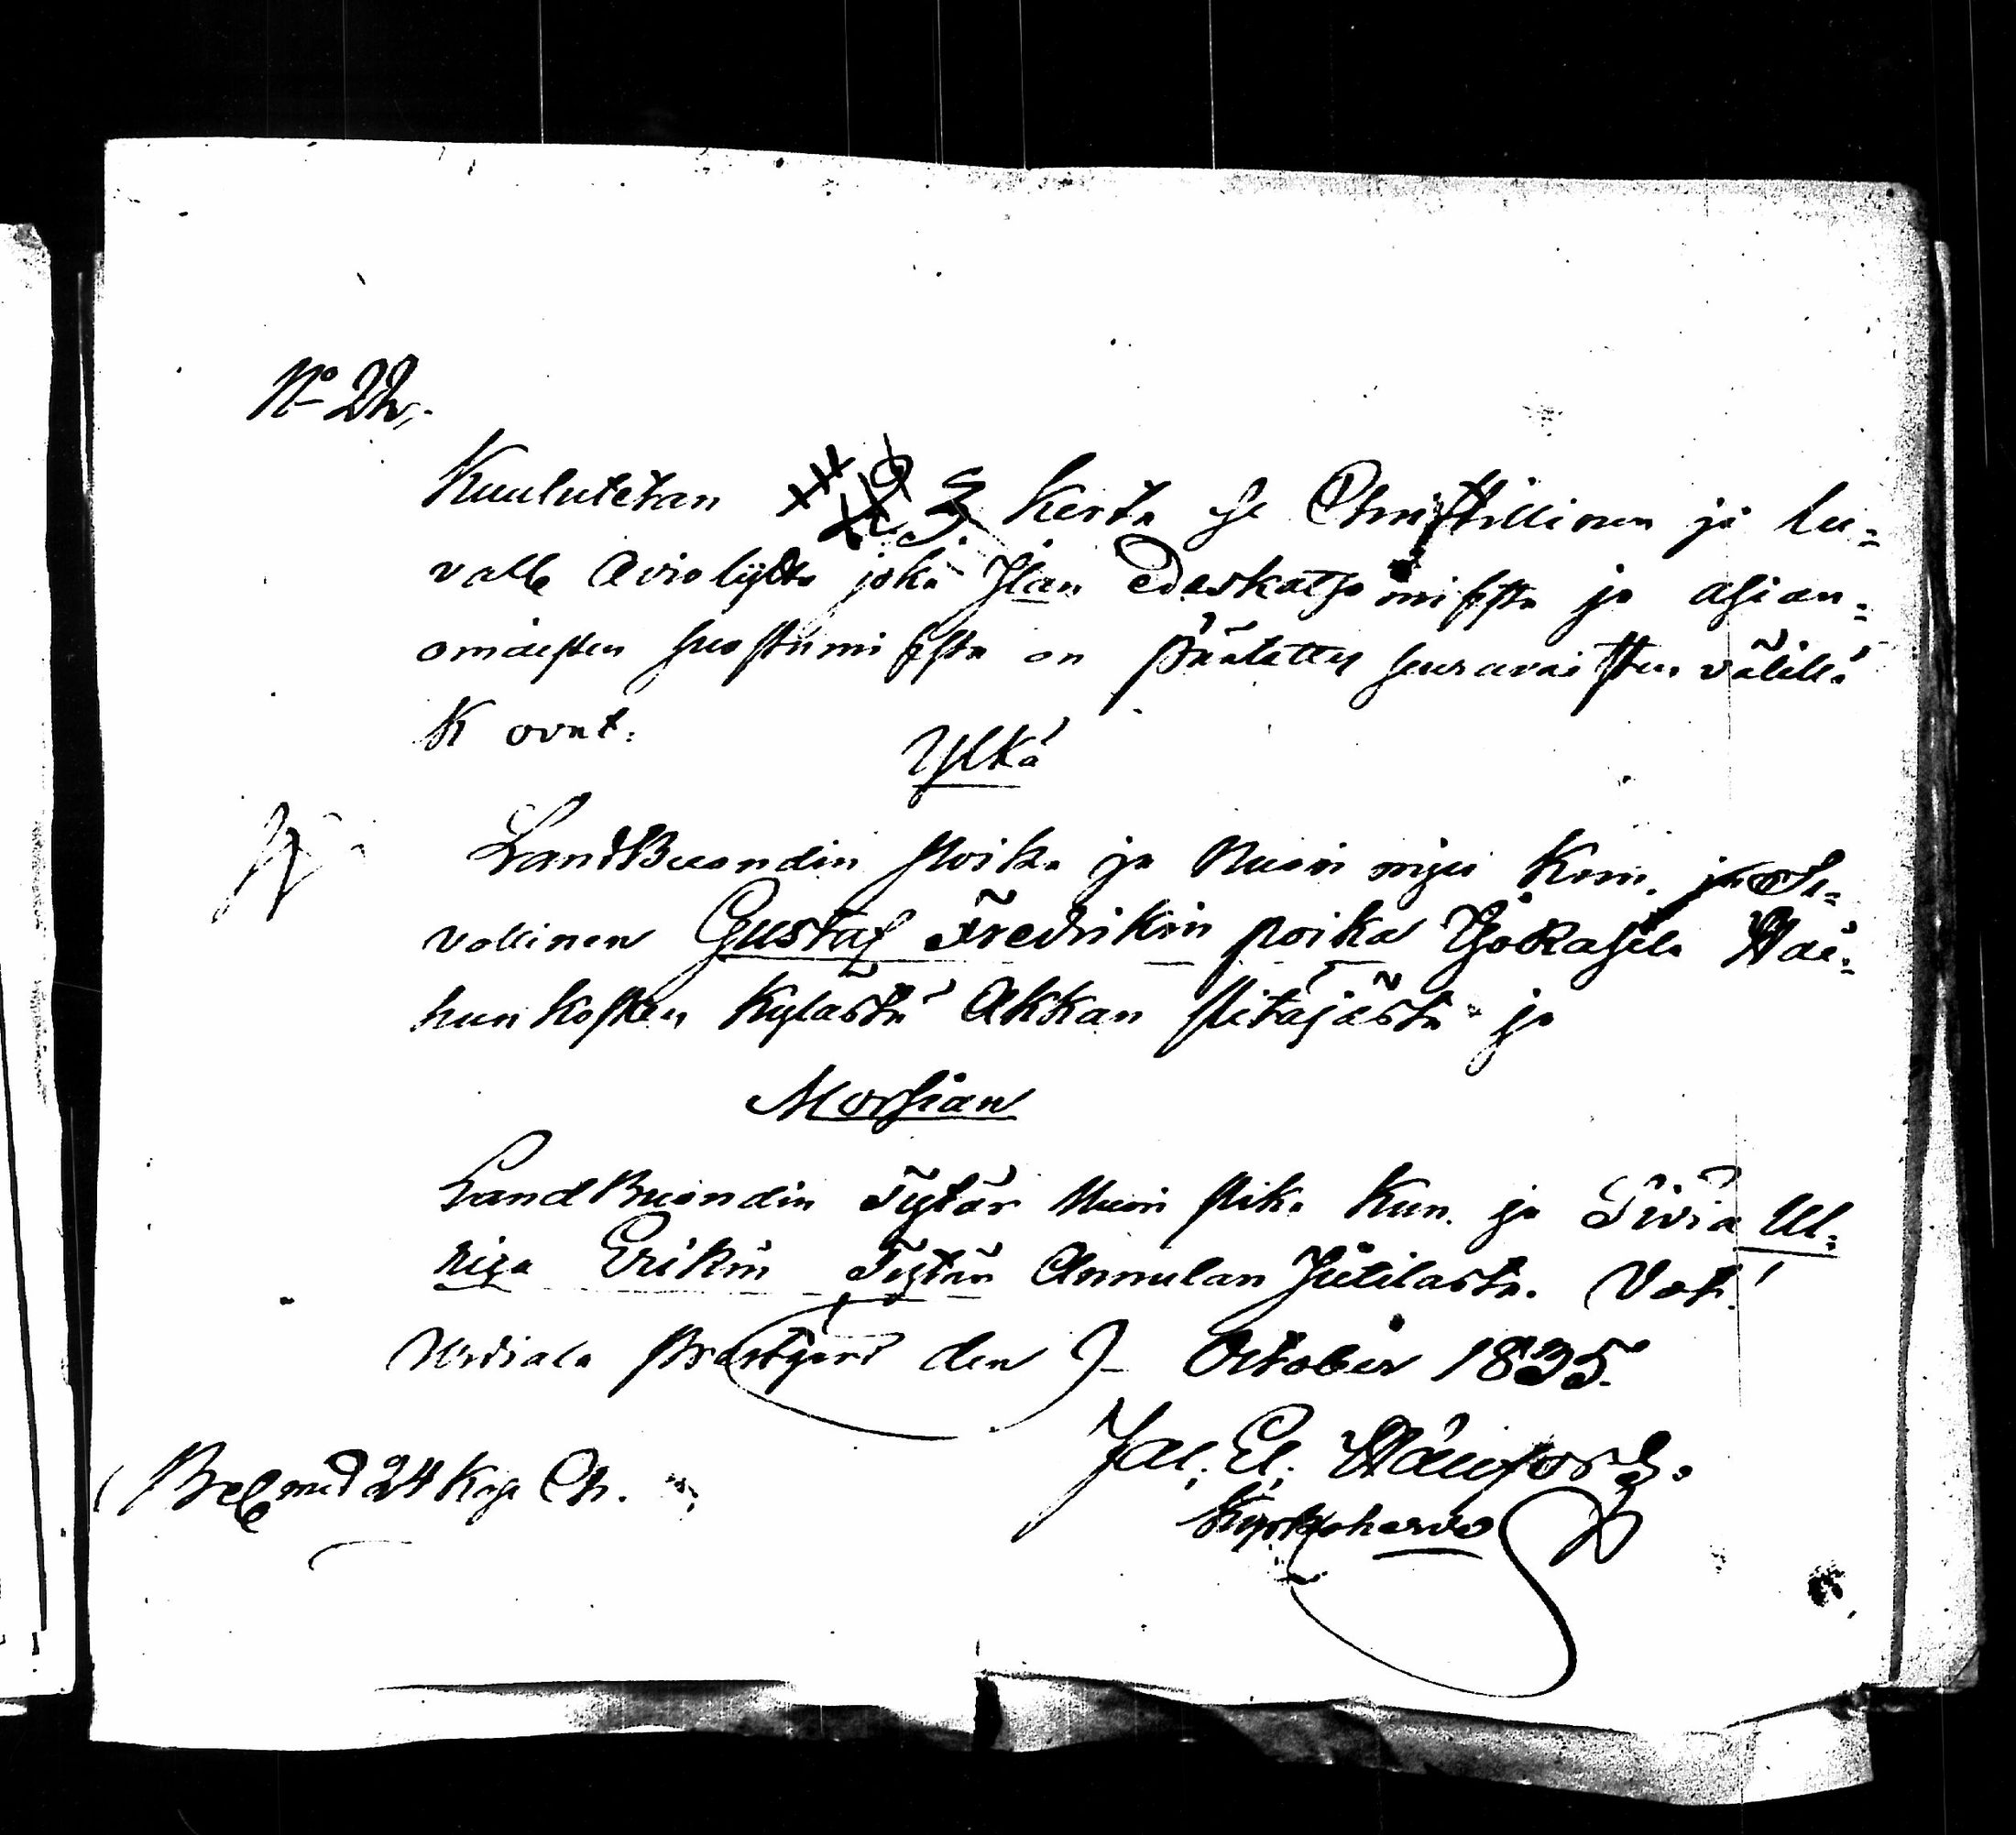 No 22.
Kuulutetan 3 Kerta se Christillinen ja lu-
valle Aviolijtto joka Jlan edeskatsomisesta ja asian-
omaisten suostumisesta on päätetty seuravaisten välillä
K ovat:
Ylkä
LandBuondin poika ja Nuori mies Kuni. ja
vollinen Gustaf Fredrikin poika
hunkosken Kylästä Akkan pitäjästä ja
Morsian
LandBuondin Tytär Nuori pika Kun. ja Sivia Ul-
rica Erikin Tytär Annulan Jutilasta. Vat.
Urdiala Prestgård den October 1835.
Jac. El.
Kyrkoherde
Bel. med 24 Kop. Ch.